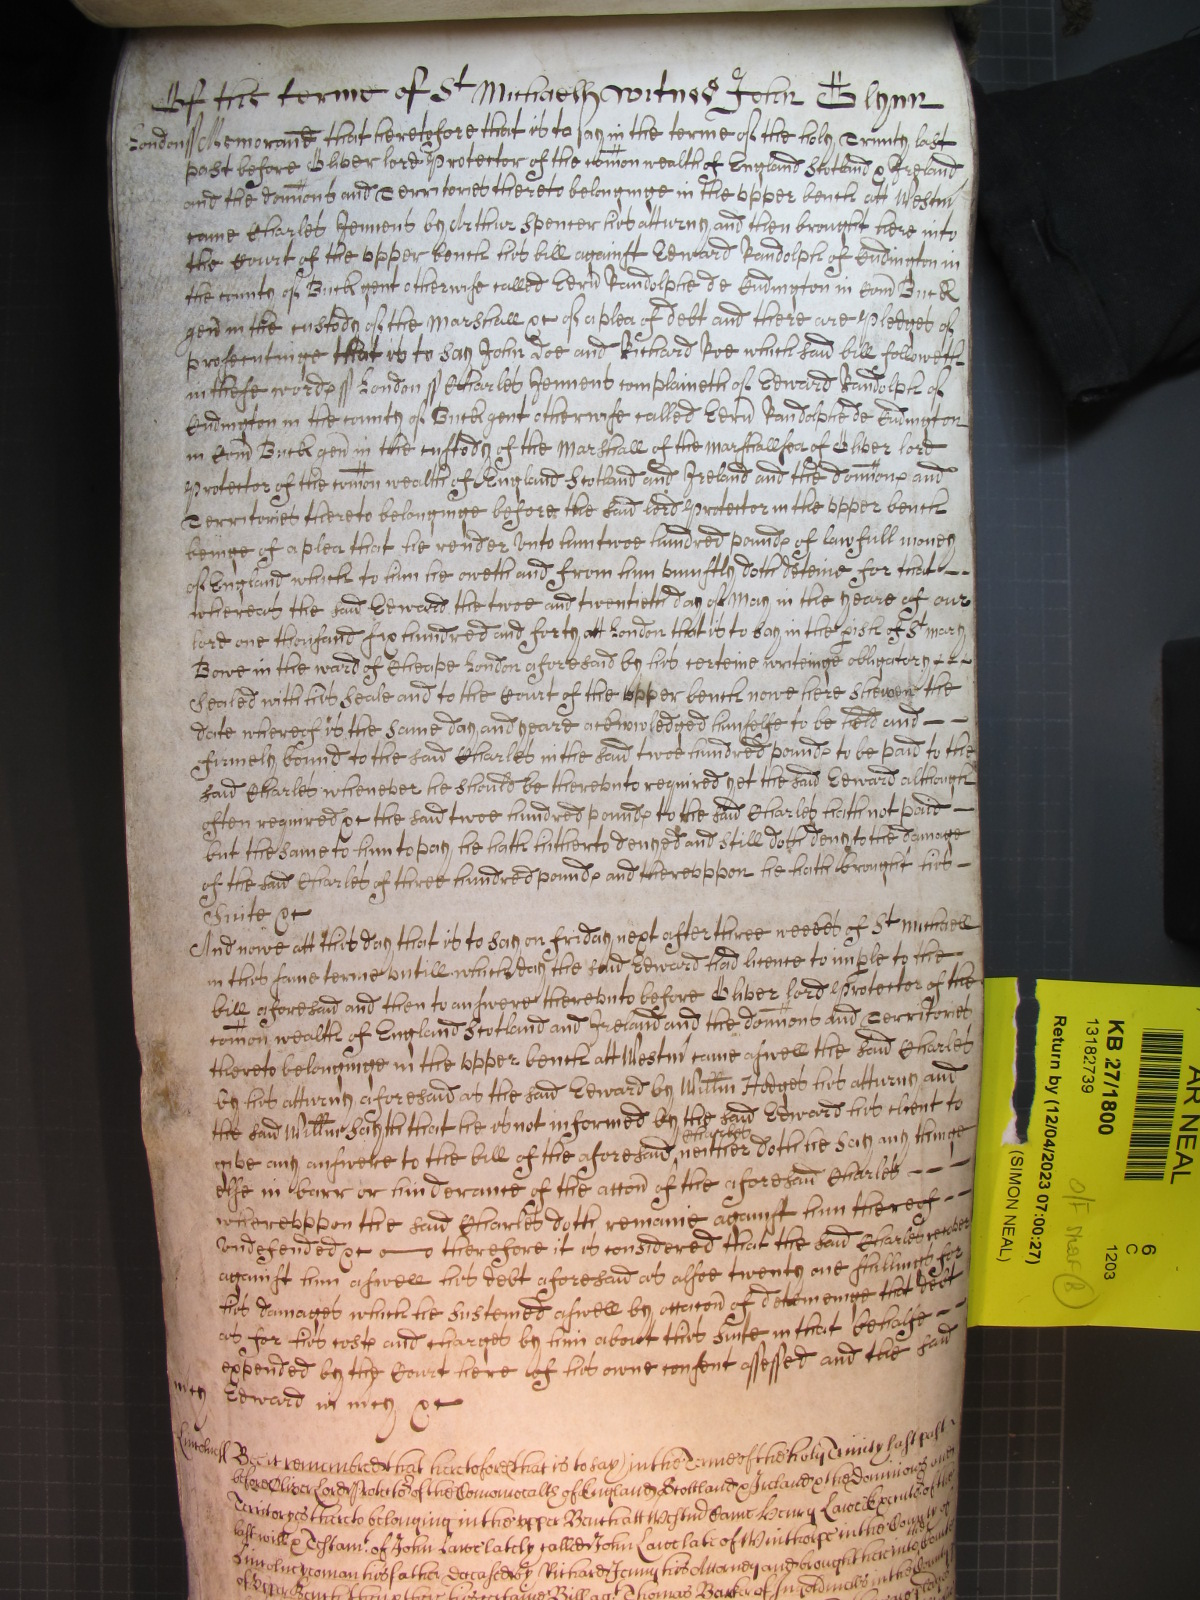 Of the terme of St Michaell witnes John Glynn
London ss Memorand that heretofore that is to say in the terme of the holy Trinity last
past before Oliver lord Protector of the comon wealth of England Scotland & Ireland
and the domions and Territories thereto belonginge in the upper bench att Westm
came Charles Jennens by Arthur Spencer his atturny and then brought here into
the Court of the upper bench his bill against Edward Randolph of Cudington in
the county of Buck gent otherwise called Edrd Randolphe de Cudington in Com Buck
gen in the custody of the Marshall &c of a plea of debt and there are Pledges of
prosecutinge that is to say John Doe and Richard Roe which said bill followeth
in these words ss London ss Charles Jennens complaineth of Edward Randolph of
Cudington in the county of Buck gent otherwise called Edrd Randolphe de Cudington
in Com Buck gen in the custody of the Marshall of the Marshallsea of Oliver lord
Protector of the comon wealth of England Scotland and Ireland and the domions and
Territories thereto belonginge before the said lord Protector in the upper bench
beinge of a plea that he render unto him twoe hundred pounds of lawfull money
of England which to him he oweth and from him uniustly doth deteine for that --
whereas the said Edward the twoe and twentieth day of May in the yeare of our
lord one thousand six hundred and forty att London that is to say in the pish of St mary
Bowe in the ward of Cheape London aforesaid by his certeine writeinge obligatory ---
Sealed with his Seale and to the Court of the upper bench nowe here shewen the
date whereof is the same day and yeare acknowledged himselfe to be held and --
firmely bound to the said Charles in the said twoe hundred pounds to be paid to the
said Charles whenever he should be thereunto required yet the said Edward although
often required &c the said twoe hundred pounds to the said Charles hath not paid -
but the same to him to pay he hath hitherto denyed and still doth deny to the damage
of the said Charles of three hundred pounds and thereuppon he hath brought his -
Suite &c
And nowe att this day that is to say on friday next after three weekes of St Michaell
in this same terme untill which day the said Edward had licence to imple to the -
bill aforesaid and then to answere thereunto before Oliver lord Protector of the
comon wealth of England Scotland and Ireland and the domions and Territories
thereto belonginge in the upper bench att Westm came aswell the said Charles
by his atturny aforesaid as the said Edward by Willm Hodges his atturny and
the said Willm sayth that he is not informed by the said Edward his client to
give any answere to the bill of the aforesaid Charles neither doth he say any thinge
else in barr or hinderance of the accon of the aforesaid Charles ---
whereuppon the said Charles doth remaine against him thereof --
undefended &c therefore it is considered that the said Charles recover
against him aswell his debt aforesaid as alsoe twenty one shillings for
his damages which he susteined aswell by occacon of deteineinge that debt
as for his costs and charges by him about his suite in that behalfe --
expended by the Court here of his owne consent assessed and the said
mcy Edward in mcy &c
Lincolne ss Bee it remembred that heretofore (that is to say) in the Terme of the holy Trinity last past
before Oliver Lord Protector of the Comonwealth of England Scotland & Ireland & the Dominions and
Territoryes thereto belonging in the upper Bench att Westm Came Henry Lawe executor of the
last will & Testamt of John Lawe lately called John Lawe late of Winthorpe in the County of
Lincolne yeoman his father deceased by Richard Jenny his Attorney and brought here into the Court
of upper Bench then & there his certaine Bill agt Thomas Barker of in the County
AR NEAL
KB 27/1800
13182739
Return by (12/04/2023 07:00:27)
(SIMON NEAL)
6
C
1203